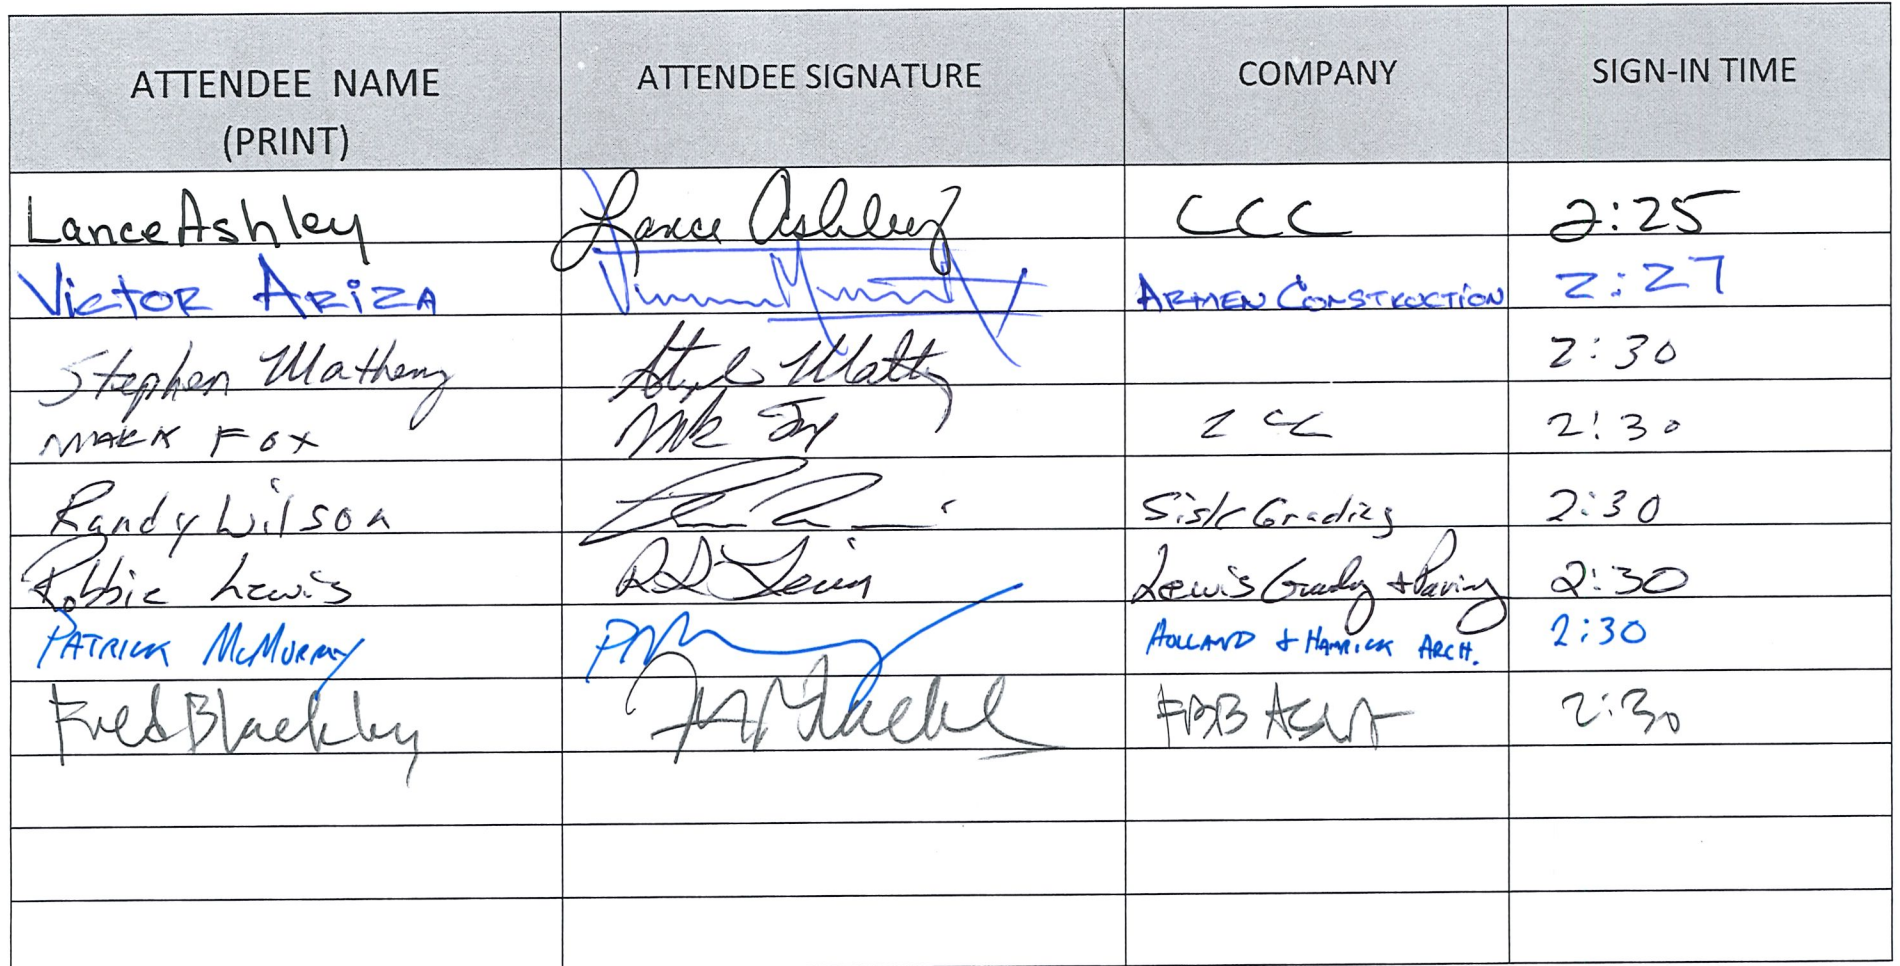 ATTENDEE NAME ATTENDEE SIGNATURE COMPANY SIGN-IN TIME
(PRINT)
Lance Ashley Lance Ashley CCC 2:25
Victor Ariza ARMEN CONSTRUCTION 2:27
Stephen Matheny 2:30
MARK FOX CC 2:30
Randy Wilson Sisk Grading 2:30
Robbie Lewis Lewis Grading + Paving 2:30
PATRICK McMURRAY HOLLAND & HAMRICK ARCH. 2:30
Fred Blackley FBB 2:30